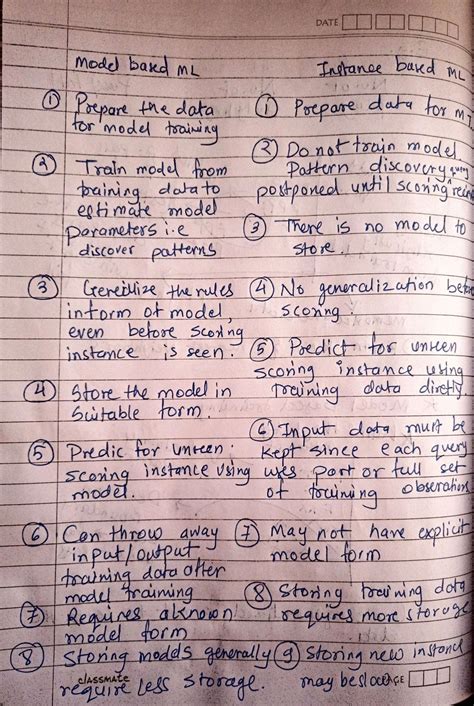 DATE
Model based ML
① Prepare the data
for model training
② Train model from
training data to
estimate model
parameters i.e
discover patterns
③ Genrilize the rules
inform of model,
even before scoring
instance is seen.
④ Store the model in
Suitable form.
⑤ Predic for unseen
scoring instance using
model.
⑥ Can throw away
input/output
training data after
model training
⑦ Requires aknown
model form
⑧ Storing models generally
require less storage.
Instance based ML
① Prepare data for
② Do not train model.
Pattern discovery
postponed until scoring
③ There is no model to
store.
④ No generalization before
scoring.
⑤ Predict for unseen
scoring instance using
training data directly
⑥ Input data must be
kept since each query
uses part or full set
of training observations
⑦ May not have explicit
model form
⑧ Storing training data
requires more storage
⑨ Storing new instance
may be
classmate
PAGE